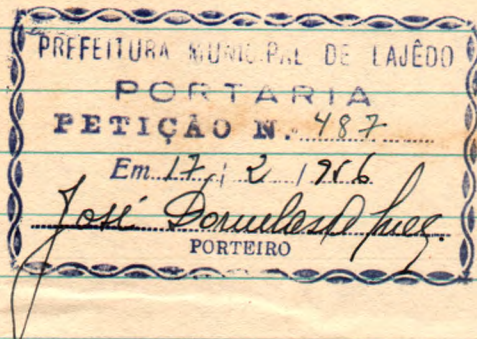 PREFEITURA MUNICIPAL DE LAJÊDO
PORTARIA
PETIÇÃO N. 487
Em 17 / 2 / 956
José
PORTEIRO